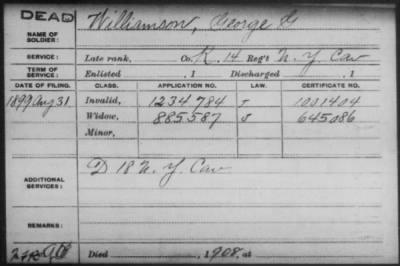 DEAD
NAME OF SOLDIER: Williamson, George G
SERVICE: Late rank, Co. K. 14 Reg't N. Y. Cav
TERM OF SERVICE: Enlisted , 1 Discharged , 1
DATE OF FILING. CLASS. APPLICATION NO. LAW. CERTIFICATE NO.
1899 Aug 31 Invalid, 1234784 J 1001404
Widow, 885.587 J 645086
Minor,
ADDITIONAL SERVICES: D 18 N. Y. Cav
REMARKS:
Died , 1908, at